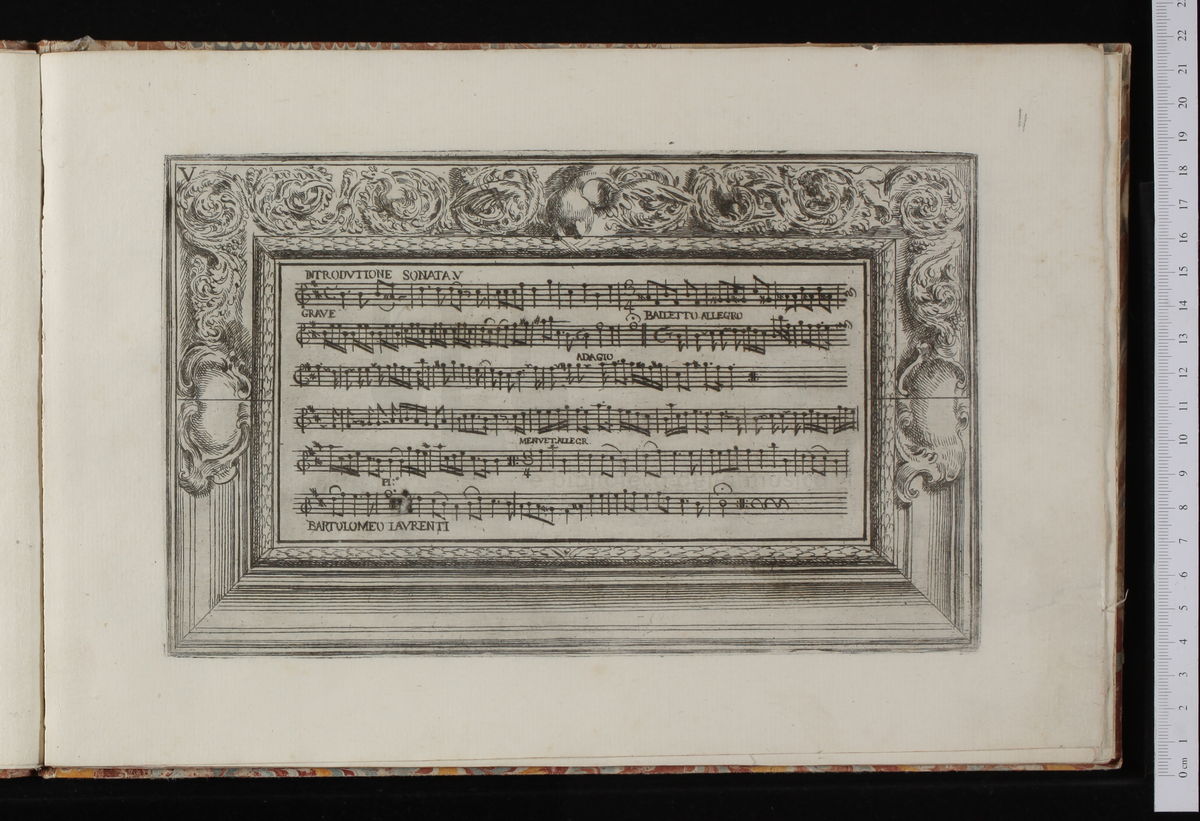 V
INTRODVTIONE SONATA V
GRAVE
BALLETTO ALLEGRO
ADAGIO
MENVET. ALLEGR.
PI:
BARTOLOMEO LAVRENTI
22
21
20
19
18
17
16
15
14
13
12
11
10
9
8
7
6
5
4
3
2
1
0 cm